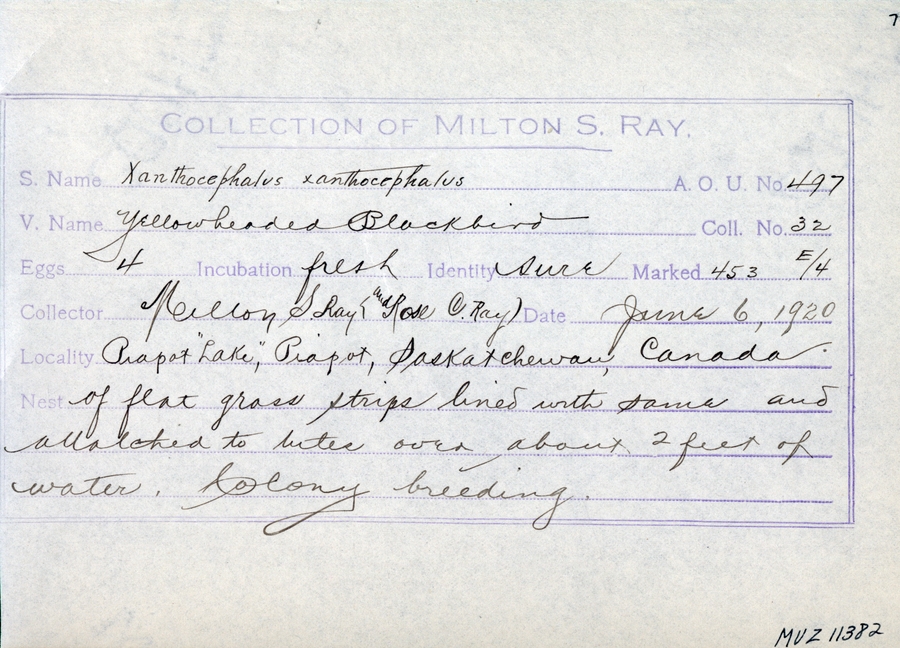 7
COLLECTION OF MILTON S. RAY.
S. Name Xanthocephalus xanthocephalus A. O. U. No. 497
V. Name Yellowheaded Blackbird Coll. No. 32
Eggs 4 Incubation fresh Identity sure Marked 453 E/4
Collector Milton S Ray (and Rose C. Ray) Date June 6, 1920
Locality Piapot "Lake", Piapot, Saskatchewan, Canada.
Nest of flat grass strips lined with same and
attatched to tules over about 2 feet of
water. Colony breeding.
MVZ 11382